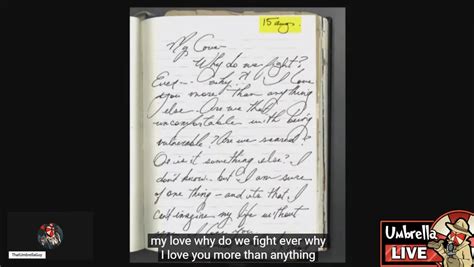 15 Aug.
My Love
Why do we fight?
Ever - why? I love
you more than anything
else. Are we that
uncomfortable with being
vulnerable? Are we scared?
Or is it something else? I
don't know. but I am sure
of one thing - and its that I
can't imagine my life without
my love why do we fight ever why
I love you more than anything
ThatUmbrellaGuy
Umbrella
LIVE